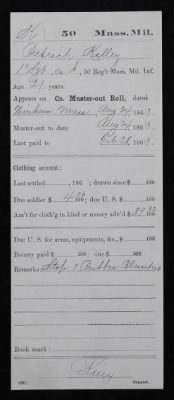 K 50 Mass. Mil.
Patrick Kelley
1st Sgt, Co. I, 50 Reg't Mass. Mil. Inf.
Age years.
Appears on Co. Muster-out Roll, dated
Wenham Mass Aug 24, 1863.
Muster-out to date Aug 24, 1863.
Last paid to Feb 28, 1863.
Clothing account:
Last settled , 186 ; drawn since $ 100
Due soldier $ 100; due U. S. $ 100
Am't for cloth'g in kind or money adv'd $ 100
Due U. S. for arms, equipments, &c., $ 100
Bounty paid $ 100; due $ 100
Remarks: Stop 1 Rubber Blanket
Book mark:
Copyist.